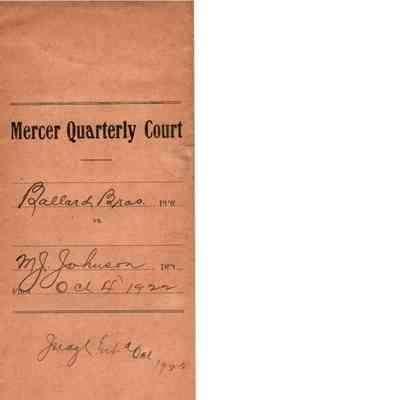 Mercer Quarterly Court
Ballard Bros. Pl'ff.
vs.
M. J. Johnson Def.
Filed Oct 4 1922
Judgt Ent'd Oct
1922